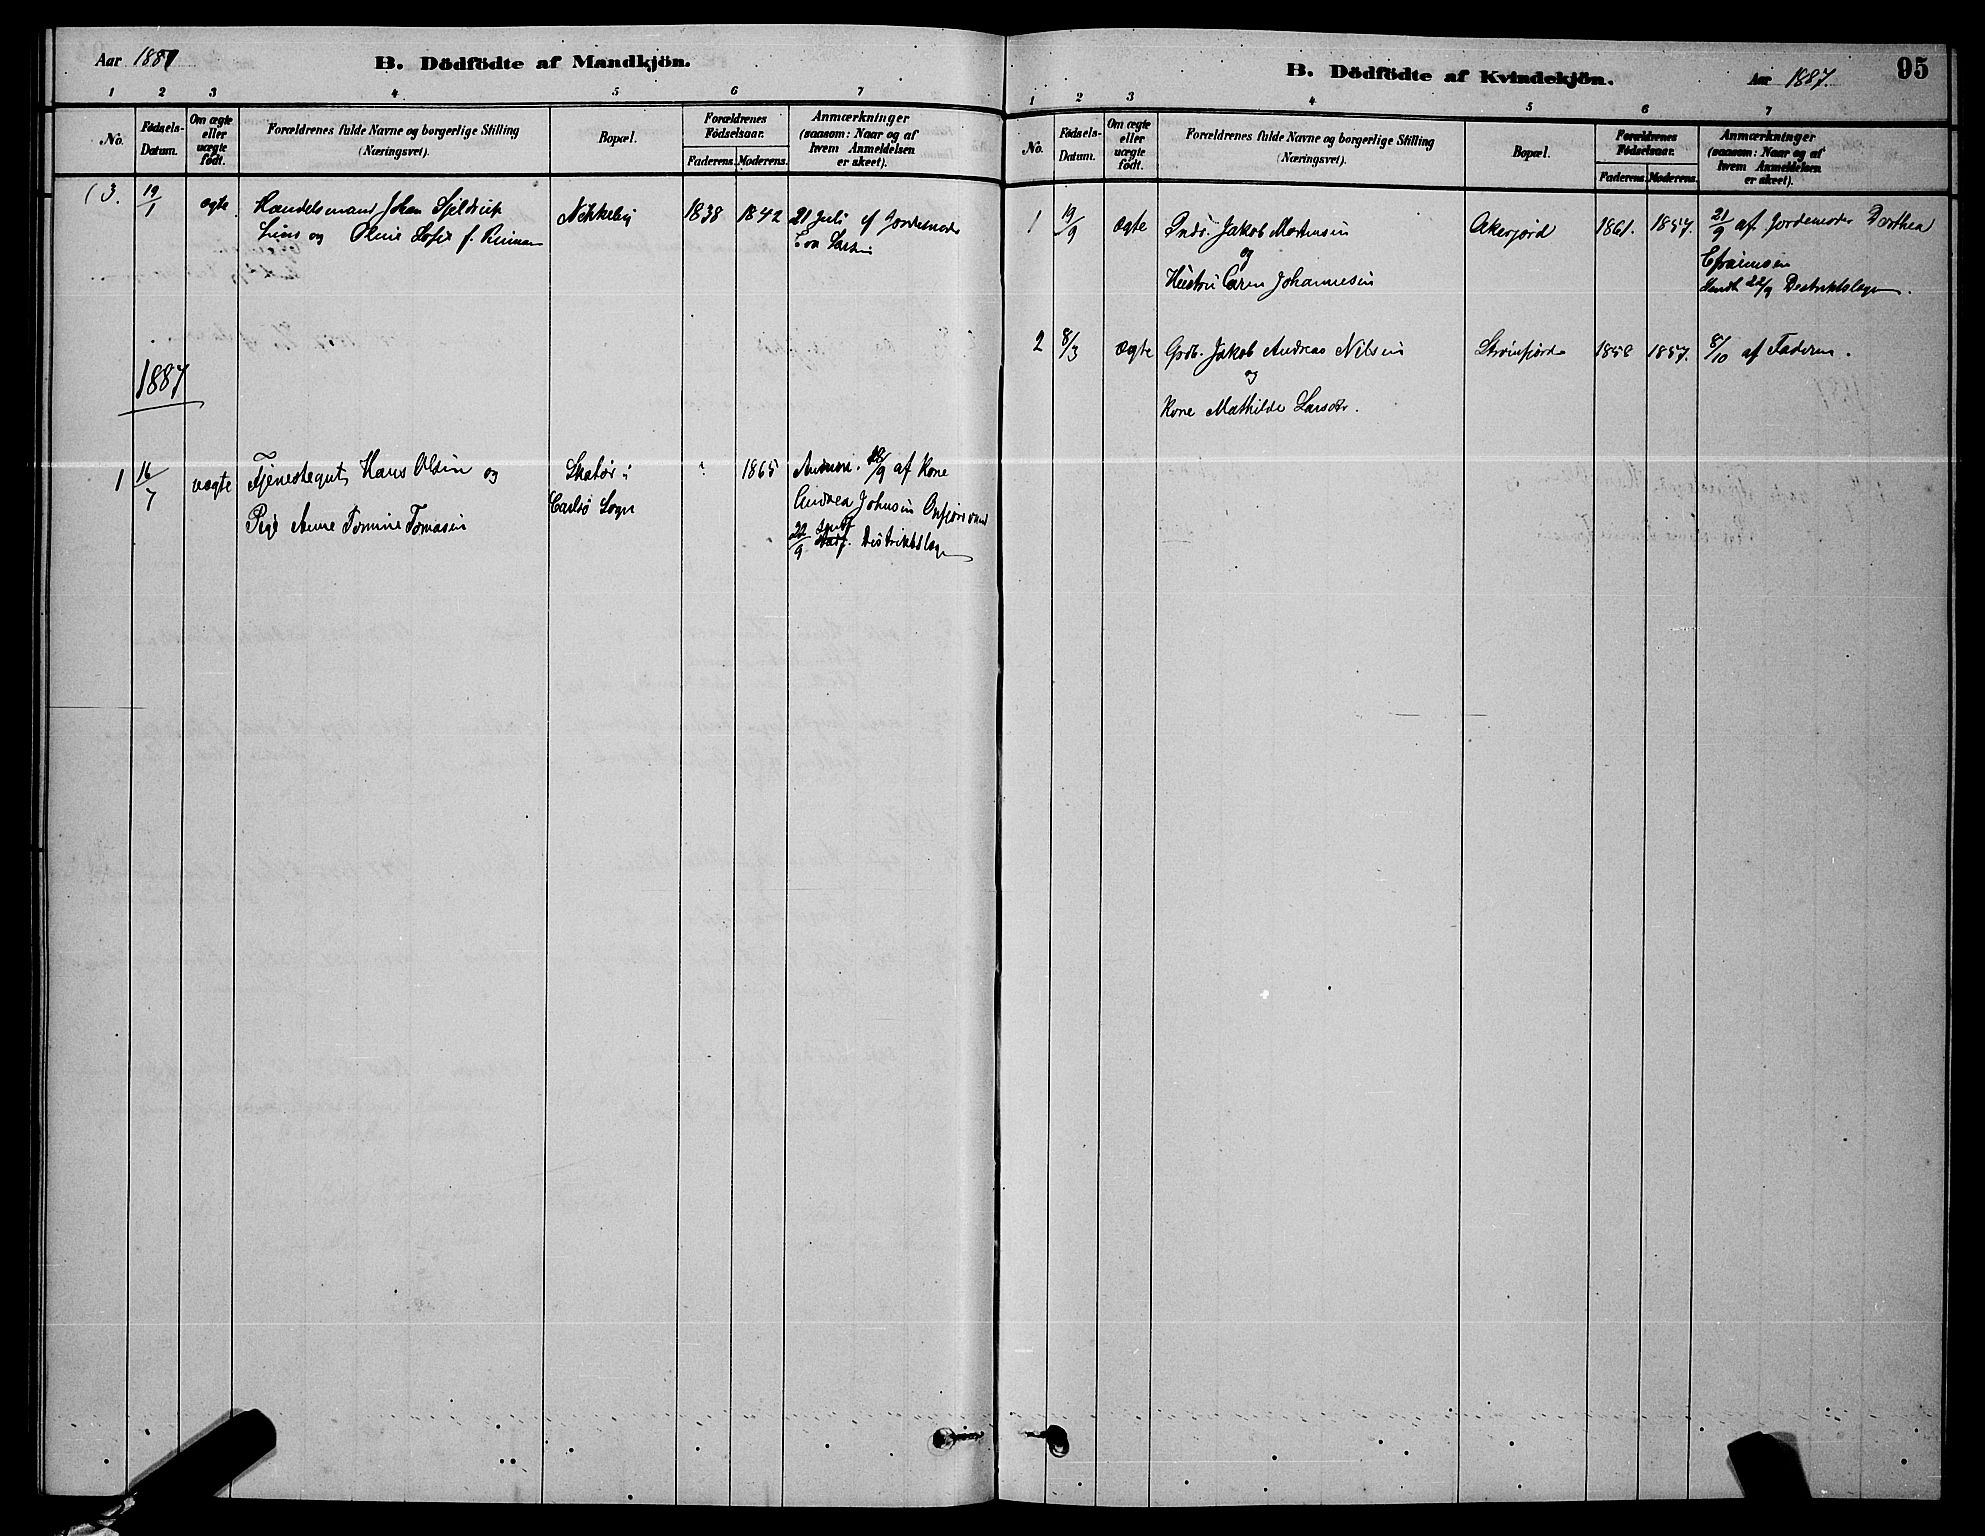 Aar 1887
B. Dödfödte af Mandkjön.
1 2 3 4 5 6 7
No.
Födsels-
Datum.
Om ægte
eller
uægte
födt.
Forældrenes fulde Navne og borgerlige Stilling
(Næringsvei).
Bopæl.
Forældrenes
Födselsaar.
Faderens. Moderens.
Anmærkninger
(saasom: Naar og af
hvem Anmeldelsen
er skeet).
3. 19/1 ægte Handelsmand Johan Hjeldrup
og Oline Sofie f.
1838 1842
21 Juli af Jordemoder
Eva
1887
1 16/7 uægte Tjenestegut Hans Olsen og
Pige Anne Tomine Tomasen
Skatør i
Carlsø Sogn
1865
/9 af Kone
Andrea Johnsen
22/9 Sendt Distriktslægen
B. Dödfödte af Kvindekjön.
Aar 1887.
95
1 2 3 4 5 6 7
No.
Födsels-
Datum.
Om ægte
eller
uægte
födt.
Forældrenes fulde Navne og borgerlige Stilling
(Næringsvei).
Bopæl.
Forældrenes
Födselsaar.
Faderens. Moderens.
Anmærkninger
(saasom: Naar og af
hvem Anmeldelsen
er skeet).
1 19/9 ægte Indr. Jakob Mortensen
og
Hustru Caren Johannesen
Akerjord 1861. 1857.
21/9 af Jordemoder Dorthea
Efraimsen
Sendt 22/9 Distriktslægen.
2 8/3 ægte Grdb. Jakob Andreas Nilsen
og
Kone Mathilde Larsdtr.
Strømfjord 1858 1857. 8/10 af Faderen.